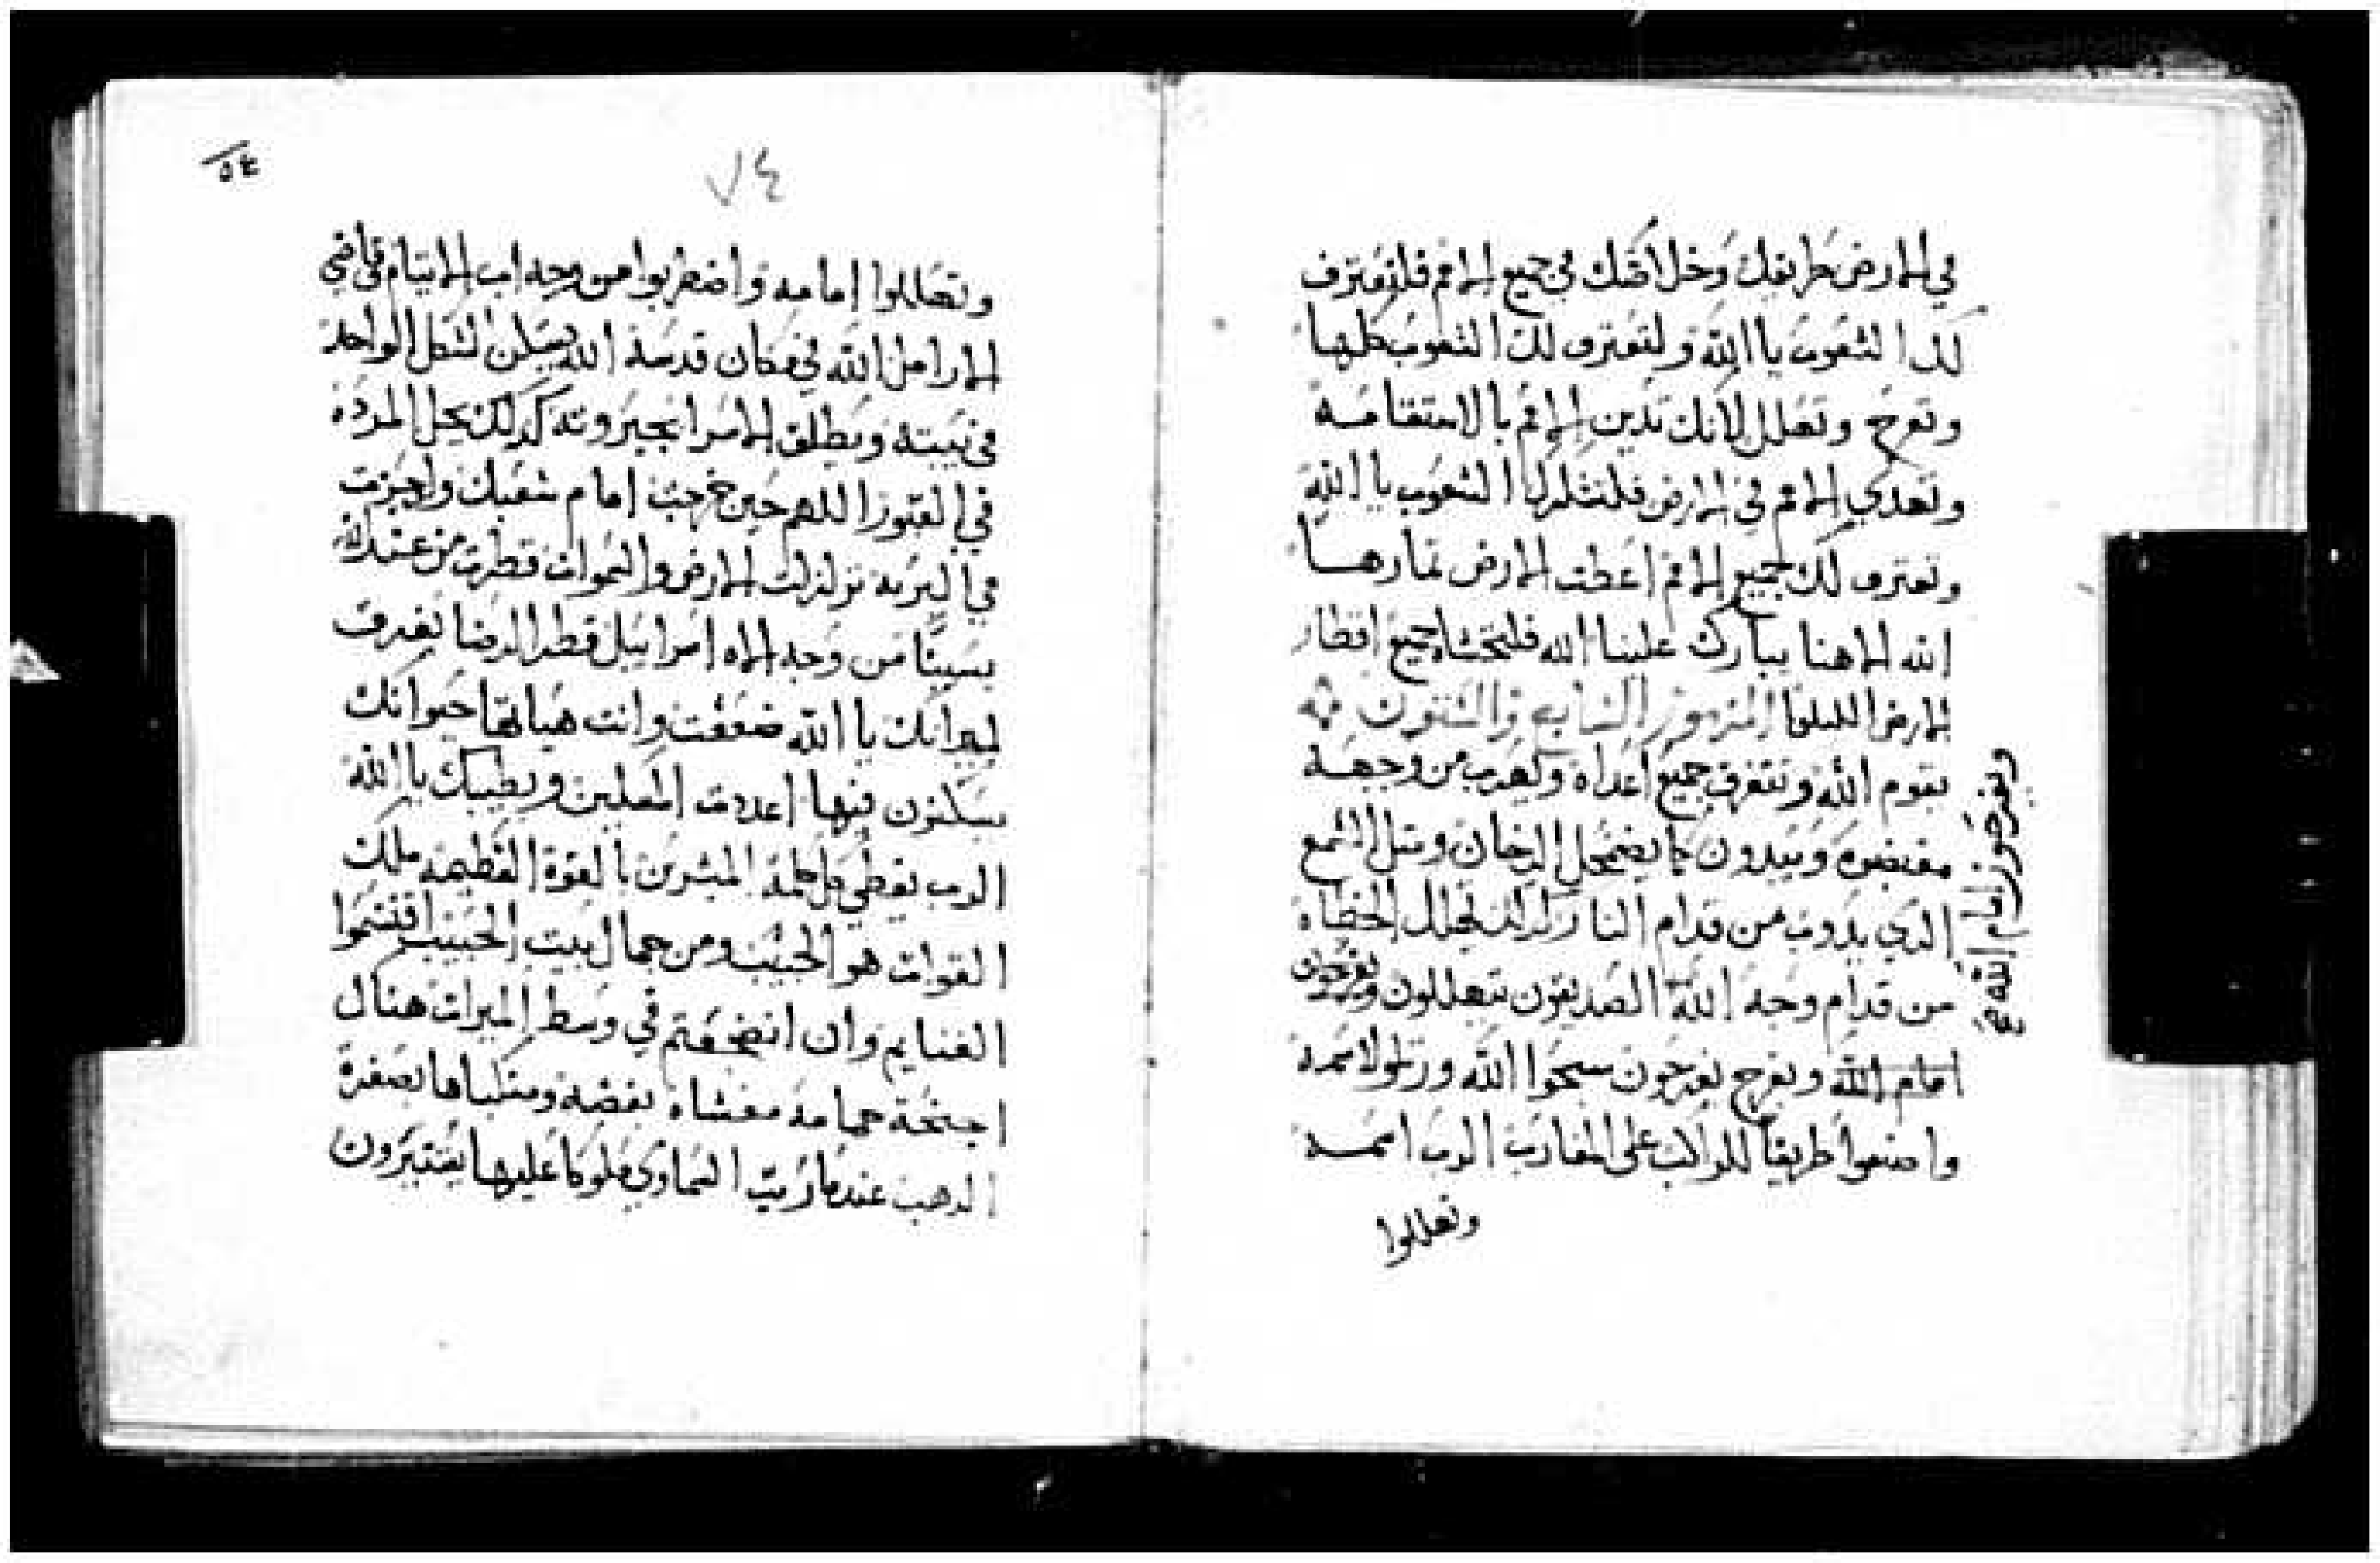 في الارض طريقك وخلاصك في جميع الامم فلتعترف
لك الشعوب يا الله ولتعترف لك الشعوب كلها
وتفرح وتهلل لانك تدين الامم بالاستقامة
وتهدي الامم في الارض فلتشكرك الشعوب يا الله
وتعترف لك جميع الامم اعطت الارض ثمارها
الله الاهنا يباركن علينا الله فلتخشاه جميع اقطار
الارض الليلويا المزمور السابع والستون
يقوم الله وتتفرق جميع اعداه ويهرب من وجهه
مبغضوه ويبيدون كما يضمحل الدخان ومثل الشمع
الذي يذوب من قدام النار كذلك تهلك الخطاه
من قدام وجه الله الصديقون يتهللون ويفرحون
امام الله وبفرح يفرحون سبحوا الله ورتلوا لاسمه
واصنعوا طريقا للراكب على المغارب الرب اسمه
وتهللوا
ويفرحون امام الله صح
٥٤
٧٤
وتهللوا امامه واضطربوا من وجه اب الايتام قاضي
الارامل الله في مكان قدسه الله يسكن لشكل الواحد
في بيته ويطلق الاسرا بجبروته كذلك نحل المرده
في القبور اللهم حين خرجت امام شعبك واجزت
في البريه تزلزلت الارض والسموات قطرت من عند الله
بسينا من وجه الاه اسراييل قطر الرضا تفرق
لميراثك يا الله ضعفت وانت هياتها حيوانك
يسكنون فيها اعددت للمسكين بطيبك يا الله
الرب يعطي كلمة المبشرين بالقوة العظيمه ملك
القوات هو الحبيب ومن جمال بيت الحبيب اقتسموا
الغنايم وان انضجعتم في وسط الميراث هناك
اجنحة حمامة مغشاه بفضه ومنكباها بصفرة
الذهب عندما رتب السماوي ملوكا عليها يتبررون